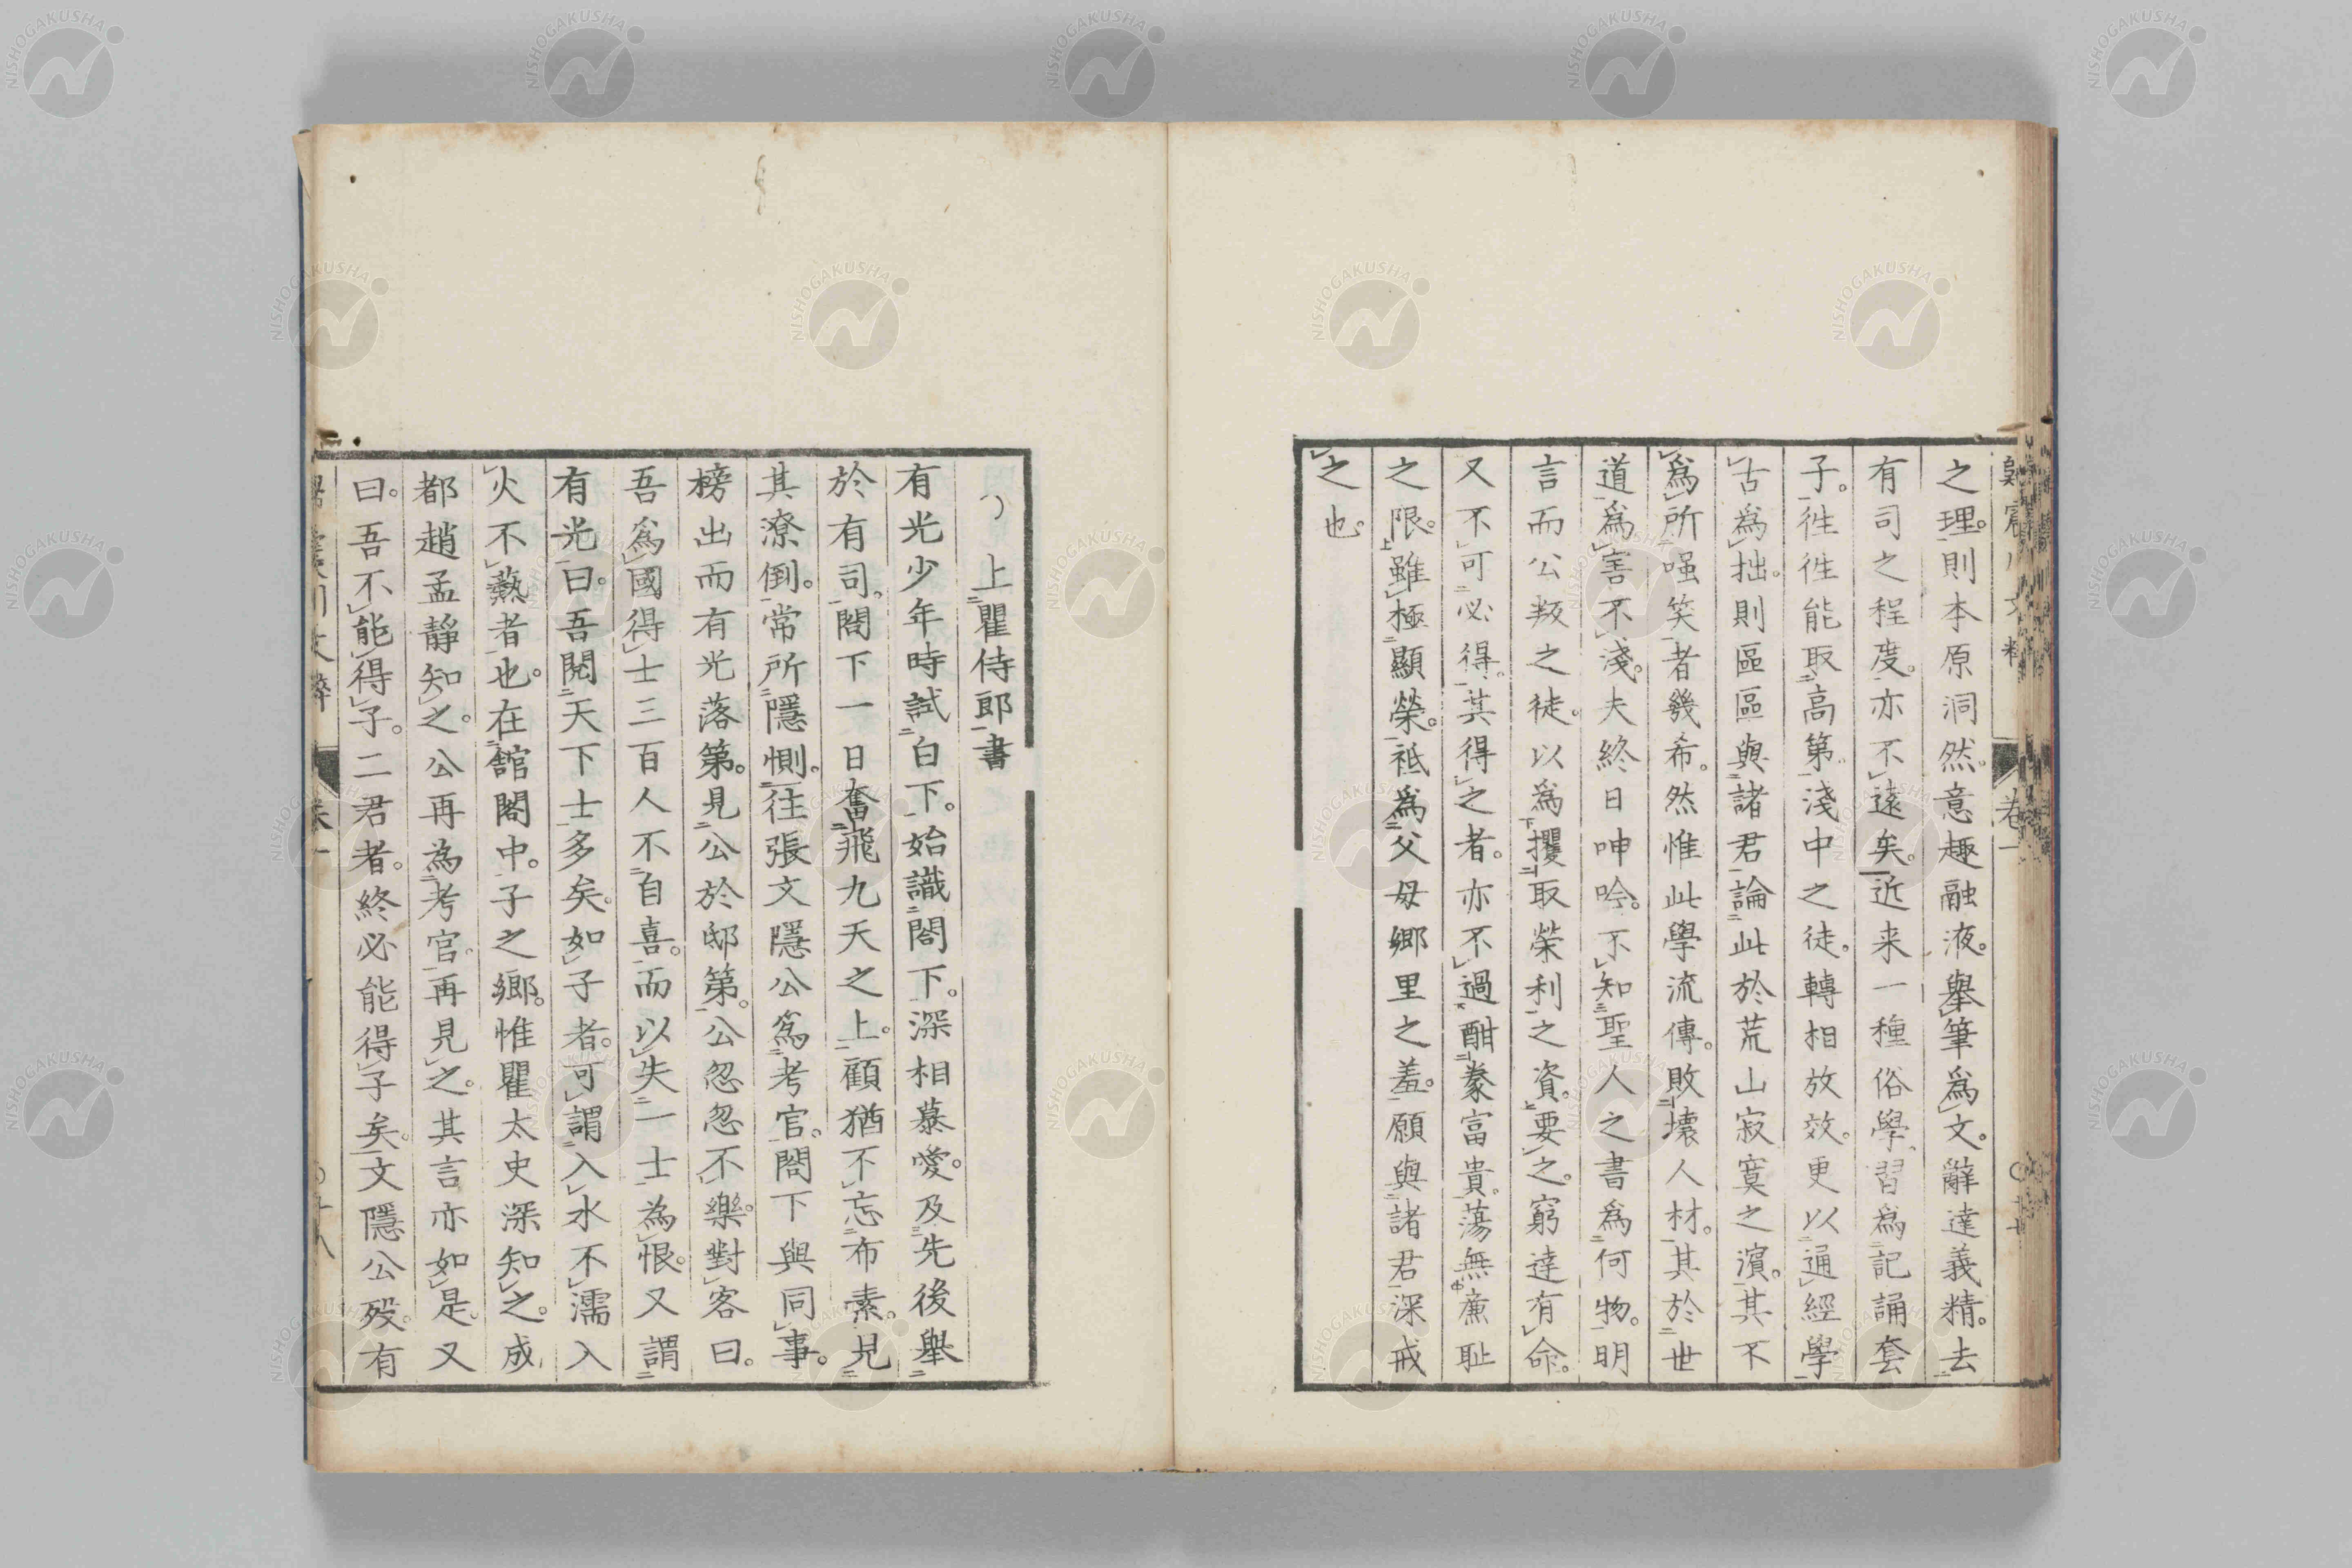 歸震川文粹 卷一
之理。則本原洞然。意趣融液。舉筆為文。辭達義精。去
有司之程度。亦不遠矣。近来一種俗學。習為記誦套
子。徃徃能取高第。淺中之徒。轉相放效。更以通經學
古為拙。則區區與諸君論此於荒山寂寞之濵。其不
為所嗤笑者幾希。然惟此學流傳。敗壊人材。其於世
道為害不淺。夫終日呻吟。不知聖人之書為何物。明
言而公叛之徒。以為攫取榮利之資。要之。窮達有命。
又不可必得。其得之者。亦不過酣豢富貴。蕩無廉耻
之限。雖極顯榮。祗為父母鄉里之羞。願與諸君深戒
之也。
上瞿侍郎書
有光少年時試白下。始識閤下。深相慕愛。及先後舉
於有司。閤下一日奮飛九天之上。顧猶不忘布素。見
其潦倒。常所隱惻。往張文隱公為考官。閤下與同事。
榜出而有光落第。見公於邸第。公忽忽不樂。對客曰。
吾為國得士三百人不自喜。而以失一士為恨。又謂
有光曰。吾閱天下士多矣。如子者。可謂入水不濡入
火不爇者也。在舘閣中。子之鄉。惟瞿太史深知之。成
都趙孟靜知之。公再為考官。再見之。其言亦如是。又
曰。吾不能得子。二君者。終必能得子矣。文隱公歿。有